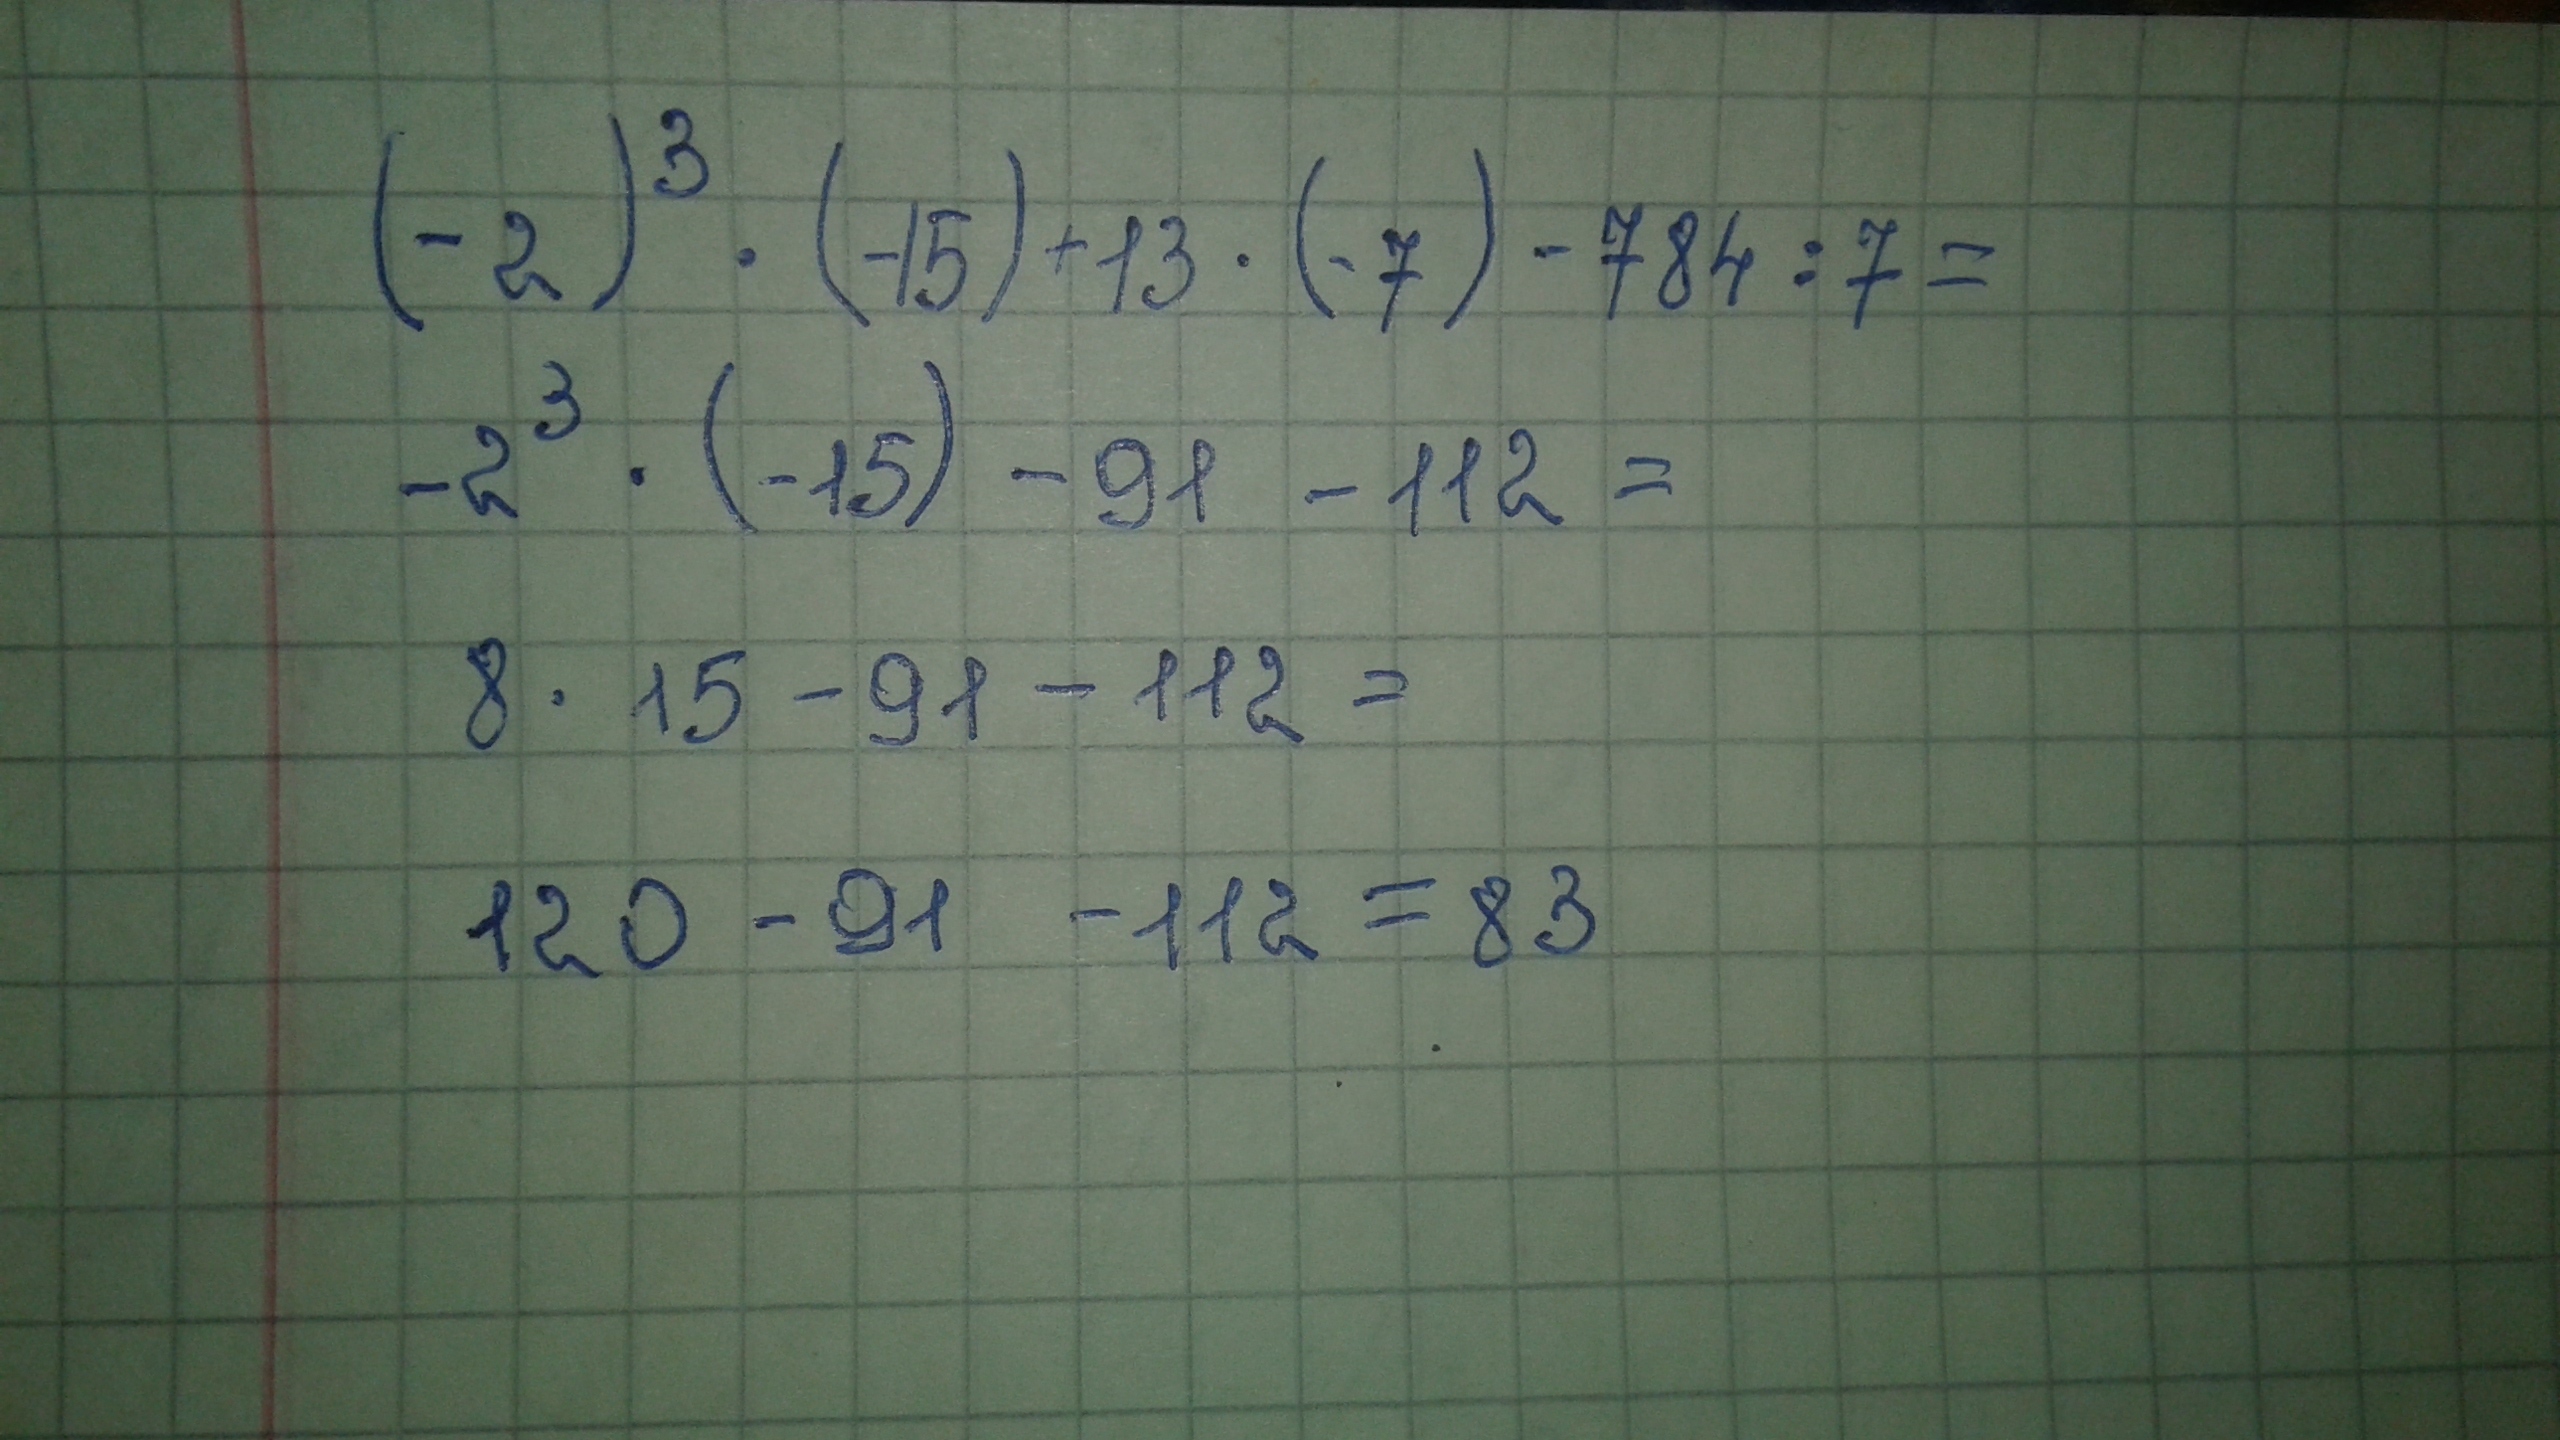 (-2)³ · (-15) + 13 · (-7) - 784 : 7 =
-2³ · (-15) - 91 - 112 =
8 · 15 - 91 - 112 =
120 - 91 - 112 = 83